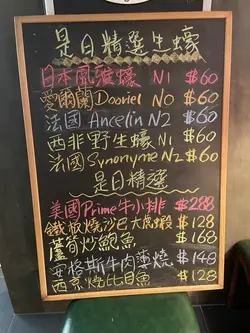 是日精選生蠔
日本風雅蠔 N1 $60
愛爾蘭Dooriel N0 $60
法國 Ancelin N2 $60
西非野生蠔 N1 $60
法國Synonyme N2 $60
是日精選
美國Prime牛小排 $288
鐵板燒沙巴大虎蝦 $128
蘆筍炒鮑魚 $168
安格斯牛肉薄燒 $148
西京燒比目魚 $128